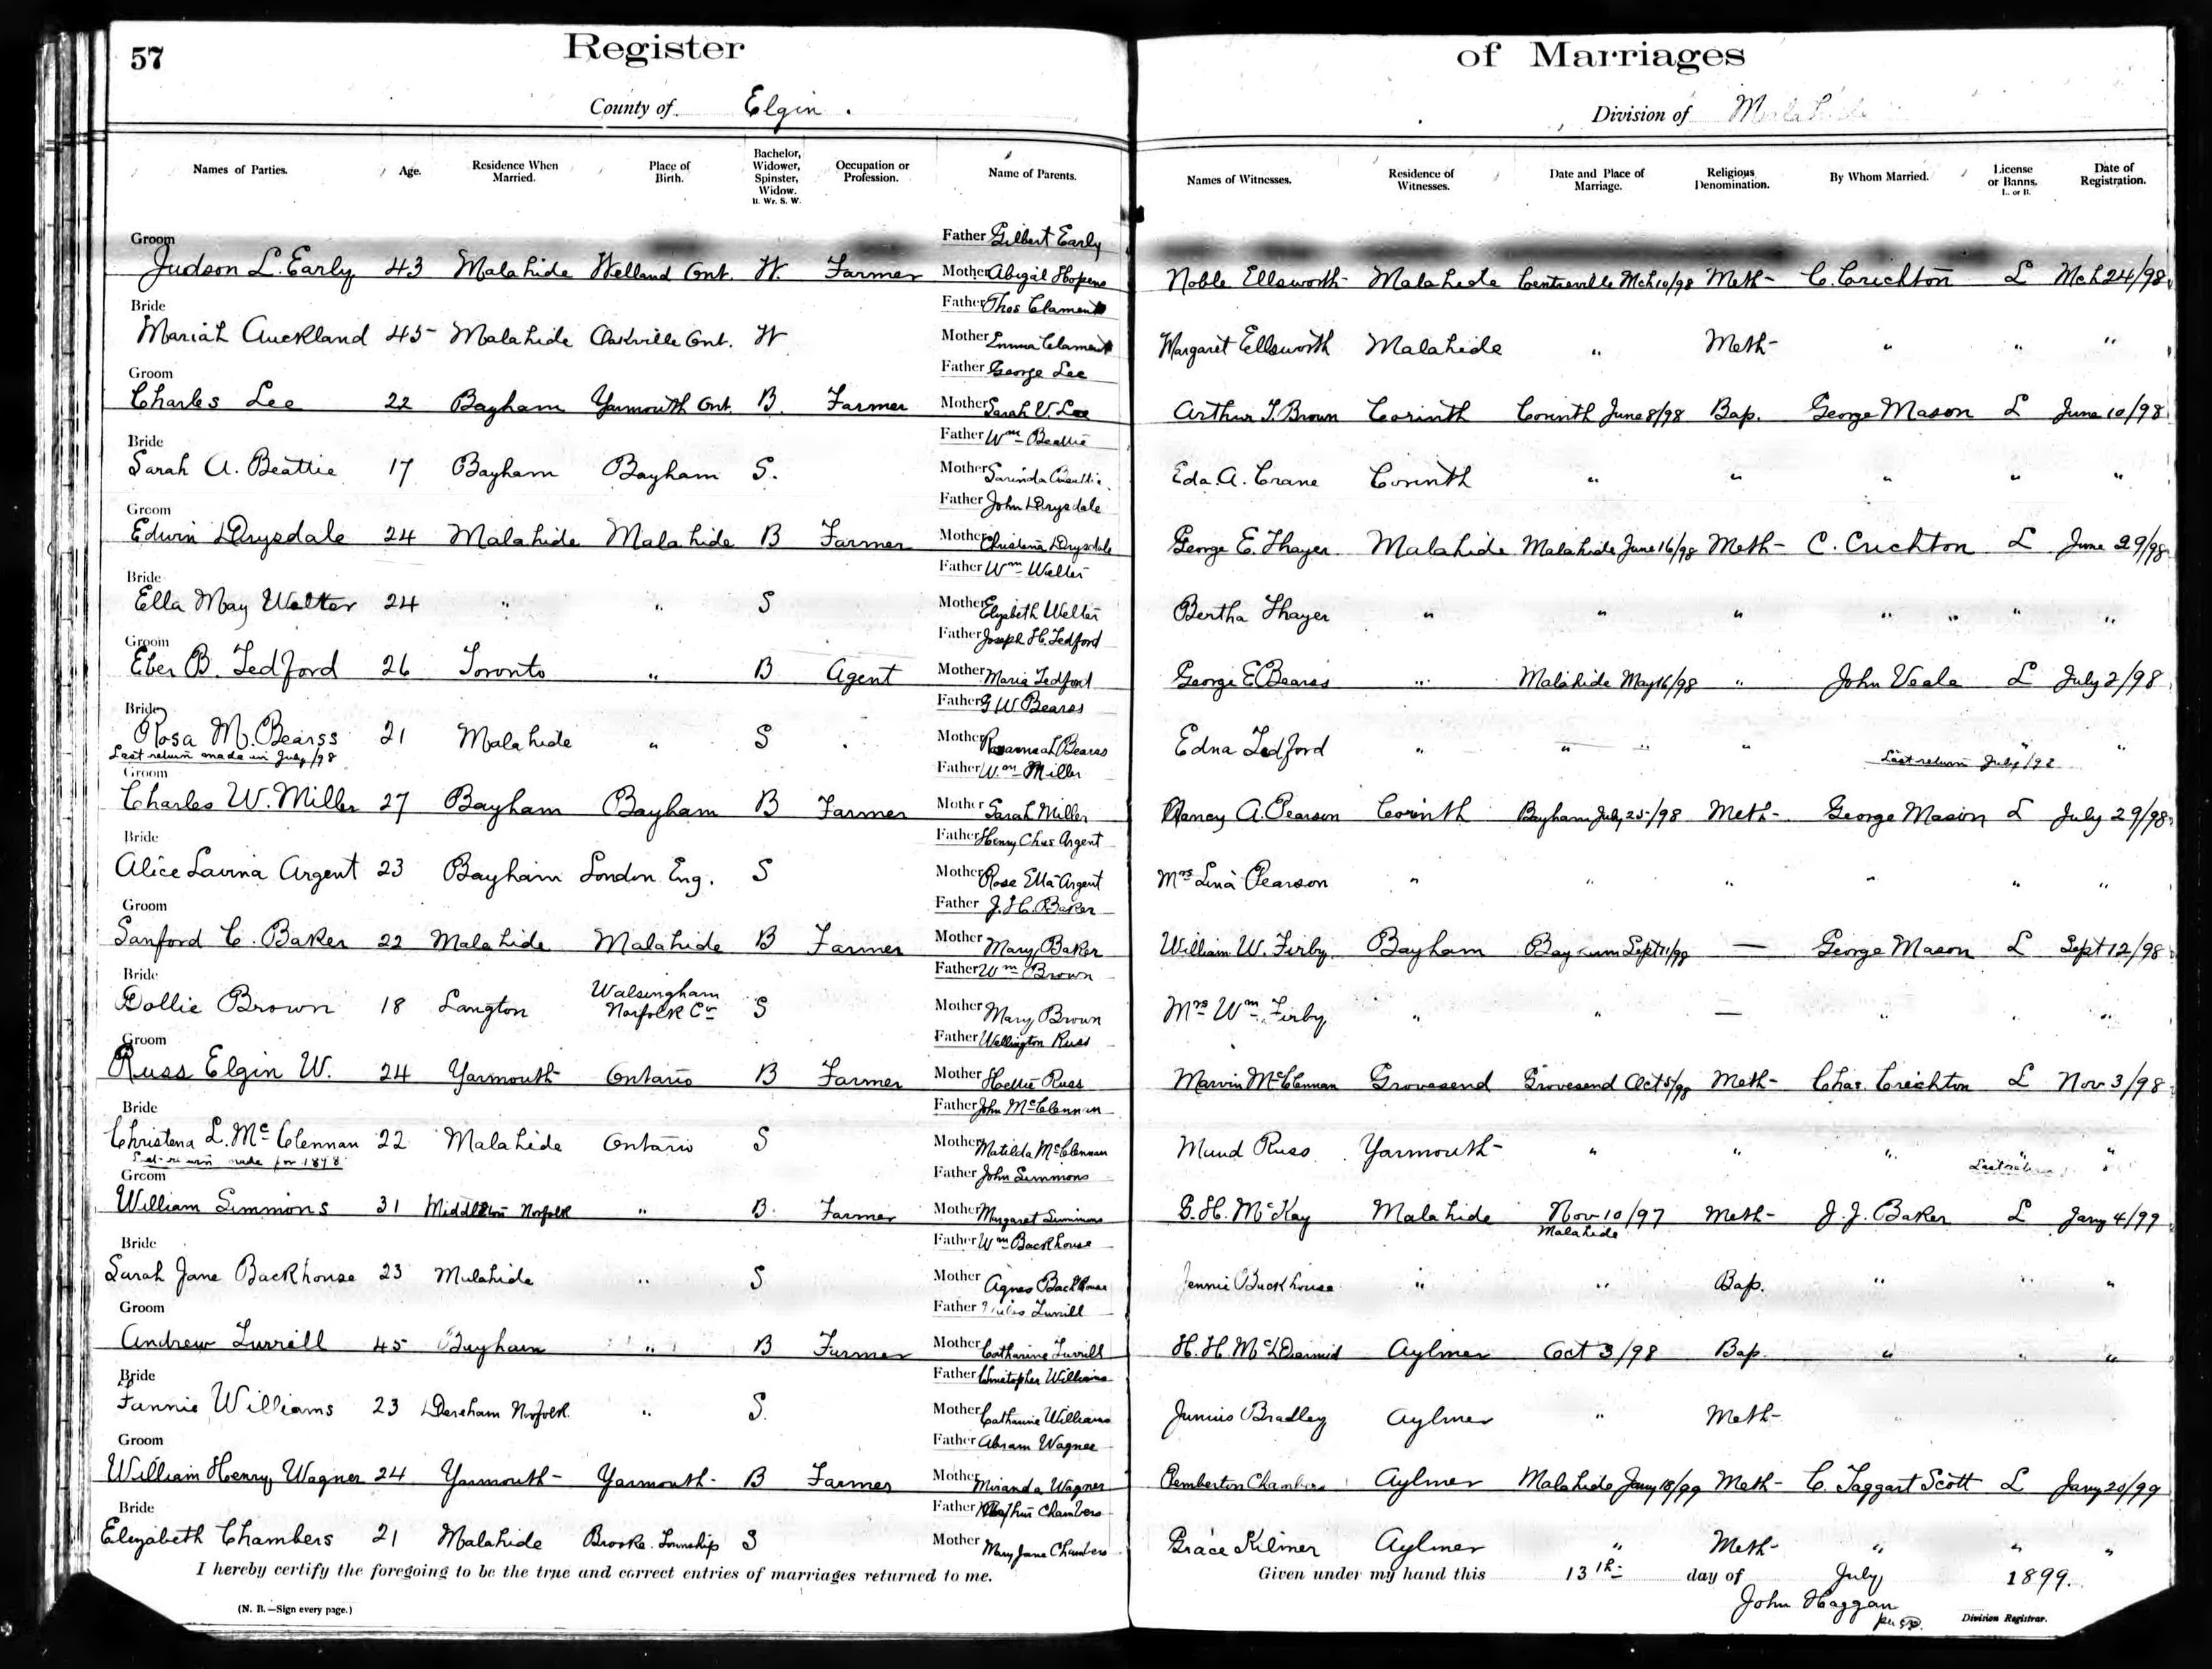 57
Register of Marriages
County of Elgin.
Division of Malahide
Names of Parties. Age. Residence When Married. Place of Birth. Bachelor, Widower, Spinster, Widow. B. Wr. S. W. Occupation or Profession. Name of Parents. Names of Witnesses. Residence of Witnesses. Date and Place of Marriage. Religious Denomination. By Whom Married. License or Banns. L. or B. Date of Registration.
Groom Father Gilbert Early
Judson L. Early 43 Malahide Welland Ont. W. Farmer Mother Abigal Noble Ellsworth Malahide Centreville Mch 10/98 Meth- C. Crichton L Mch 24/98
Bride Father Thos Clament
Mariah Auckland 45 Malahide Oakville Ont. W Mother Emma Clament Margaret Ellsworth Malahide " Meth- " " "
Groom Father George Lee
Charles Lee 22 Bayham Yarmouth Ont. B. Farmer Mother Sarah V. Lee Arthur T. Brown Corinth Corinth June 8/98 Bap. George Mason L June 10/98
Bride Father Wm Beattie
Sarah A. Beattie 17 Bayham Bayham S. Mother Eda. A. Crane Corinth " " " " "
Groom Father John Drysdale
Edwin Drysdale 24 Malahide Malahide B Farmer Mother Christena Drysdale George E. Thayer Malahide Malahide June 16/98 Meth- C. Crichton L June 29/98
Bride Father Wm Welter
Ella May Welter 24 " " S Mother Elizabeth Welter Bertha Thayer " " " " " " "
Groom Father Joseph H. Tedford
Eber B. Tedford 26 Toronto " B Agent Mother Maria Tedford George E Bearss " Malahide May 16/98 " John Veale L July 2/98
Bride Father G W Bearss
Rosa M. Bearss 21 Malahide " S Mother Bearss Edna Tedford " " " " " "
Last return made in July/98 Last return July/98
Groom Father Wm Miller
Charles W. Miller 27 Bayham Bayham B Farmer Mother Sarah Miller Nancy A. Pearson Corinth Bayham July 25/98 Meth- George Mason L July 29/98
Bride Father Henry Chas Argent
Alice Lavina Argent 23 Bayham London Eng. S Mother Rose Ella Argent Mrs Lina Pearson " " " " " "
Groom Father J. H. Baker
Sanford C. Baker 22 Malahide Malahide B Farmer Mother Mary Baker William W. Firby Bayham Bayham Sept 11/98 — George Mason L Sept 12/98
Bride Father Wm Brown
Dollie Brown 18 Langton Walsingham Norfolk Co S Mother Mary Brown Mrs Wm. Firby " " — " " "
Groom Father Wellington Russ
Russ Elgin W. 24 Yarmouth Ontario B Farmer Mother Hettie Russ Marvin McClennan Grovesend Grovesend Oct 5/98 Meth- Chas. Crichton L Nov 3/98
Bride Father John McClennan
Christena L. McClennan 22 Malahide Ontario S Mother Matilda McClennan Maud Russ Yarmouth- " " " " "
Last return made for 1898 Last return
Groom Father John Simmons
William Simmons 31 Middleton Norfolk " B. Farmer Mother Margaret Simmons G. H. McKay Malahide Nov 10/97 Malahide Meth- J. J. Baker L Jany 4/99
Bride Father Wm Backhouse
Sarah Jane Backhouse 23 Malahide " S Mother Agnes Backhouse Jennie Backhouse " " Bap. " " "
Groom Father Turrill
Andrew Turrill 45 Bayham " B Farmer Mother Catharine Turrill H. H. McDiarmid Aylmer Oct 3/98 Bap. " " "
Bride Father Christopher Williams
Fannie Williams 23 Dereham Norfolk " S. Mother Catharine Williams Junius Bradley Aylmer " Meth-
Groom Father Abram Wagner
William Henry Wagner 24 Yarmouth- Yarmouth- B Farmer Mother Miranda Wagner Pemberton Chambers Aylmer Malahide Jany 18/99 Meth- C. Taggart Scott L Jany 20/99
Bride Father Chambers
Elizabeth Chambers 21 Malahide Brooke Township S Mother Mary Jane Chambers Grace Kilmer Aylmer " Meth- " " "
I hereby certify the foregoing to be the true and correct entries of marriages returned to me. Given under my hand this 13th day of July 1899.
John Haggan
(N. B.—Sign every page.) Division Registrar.